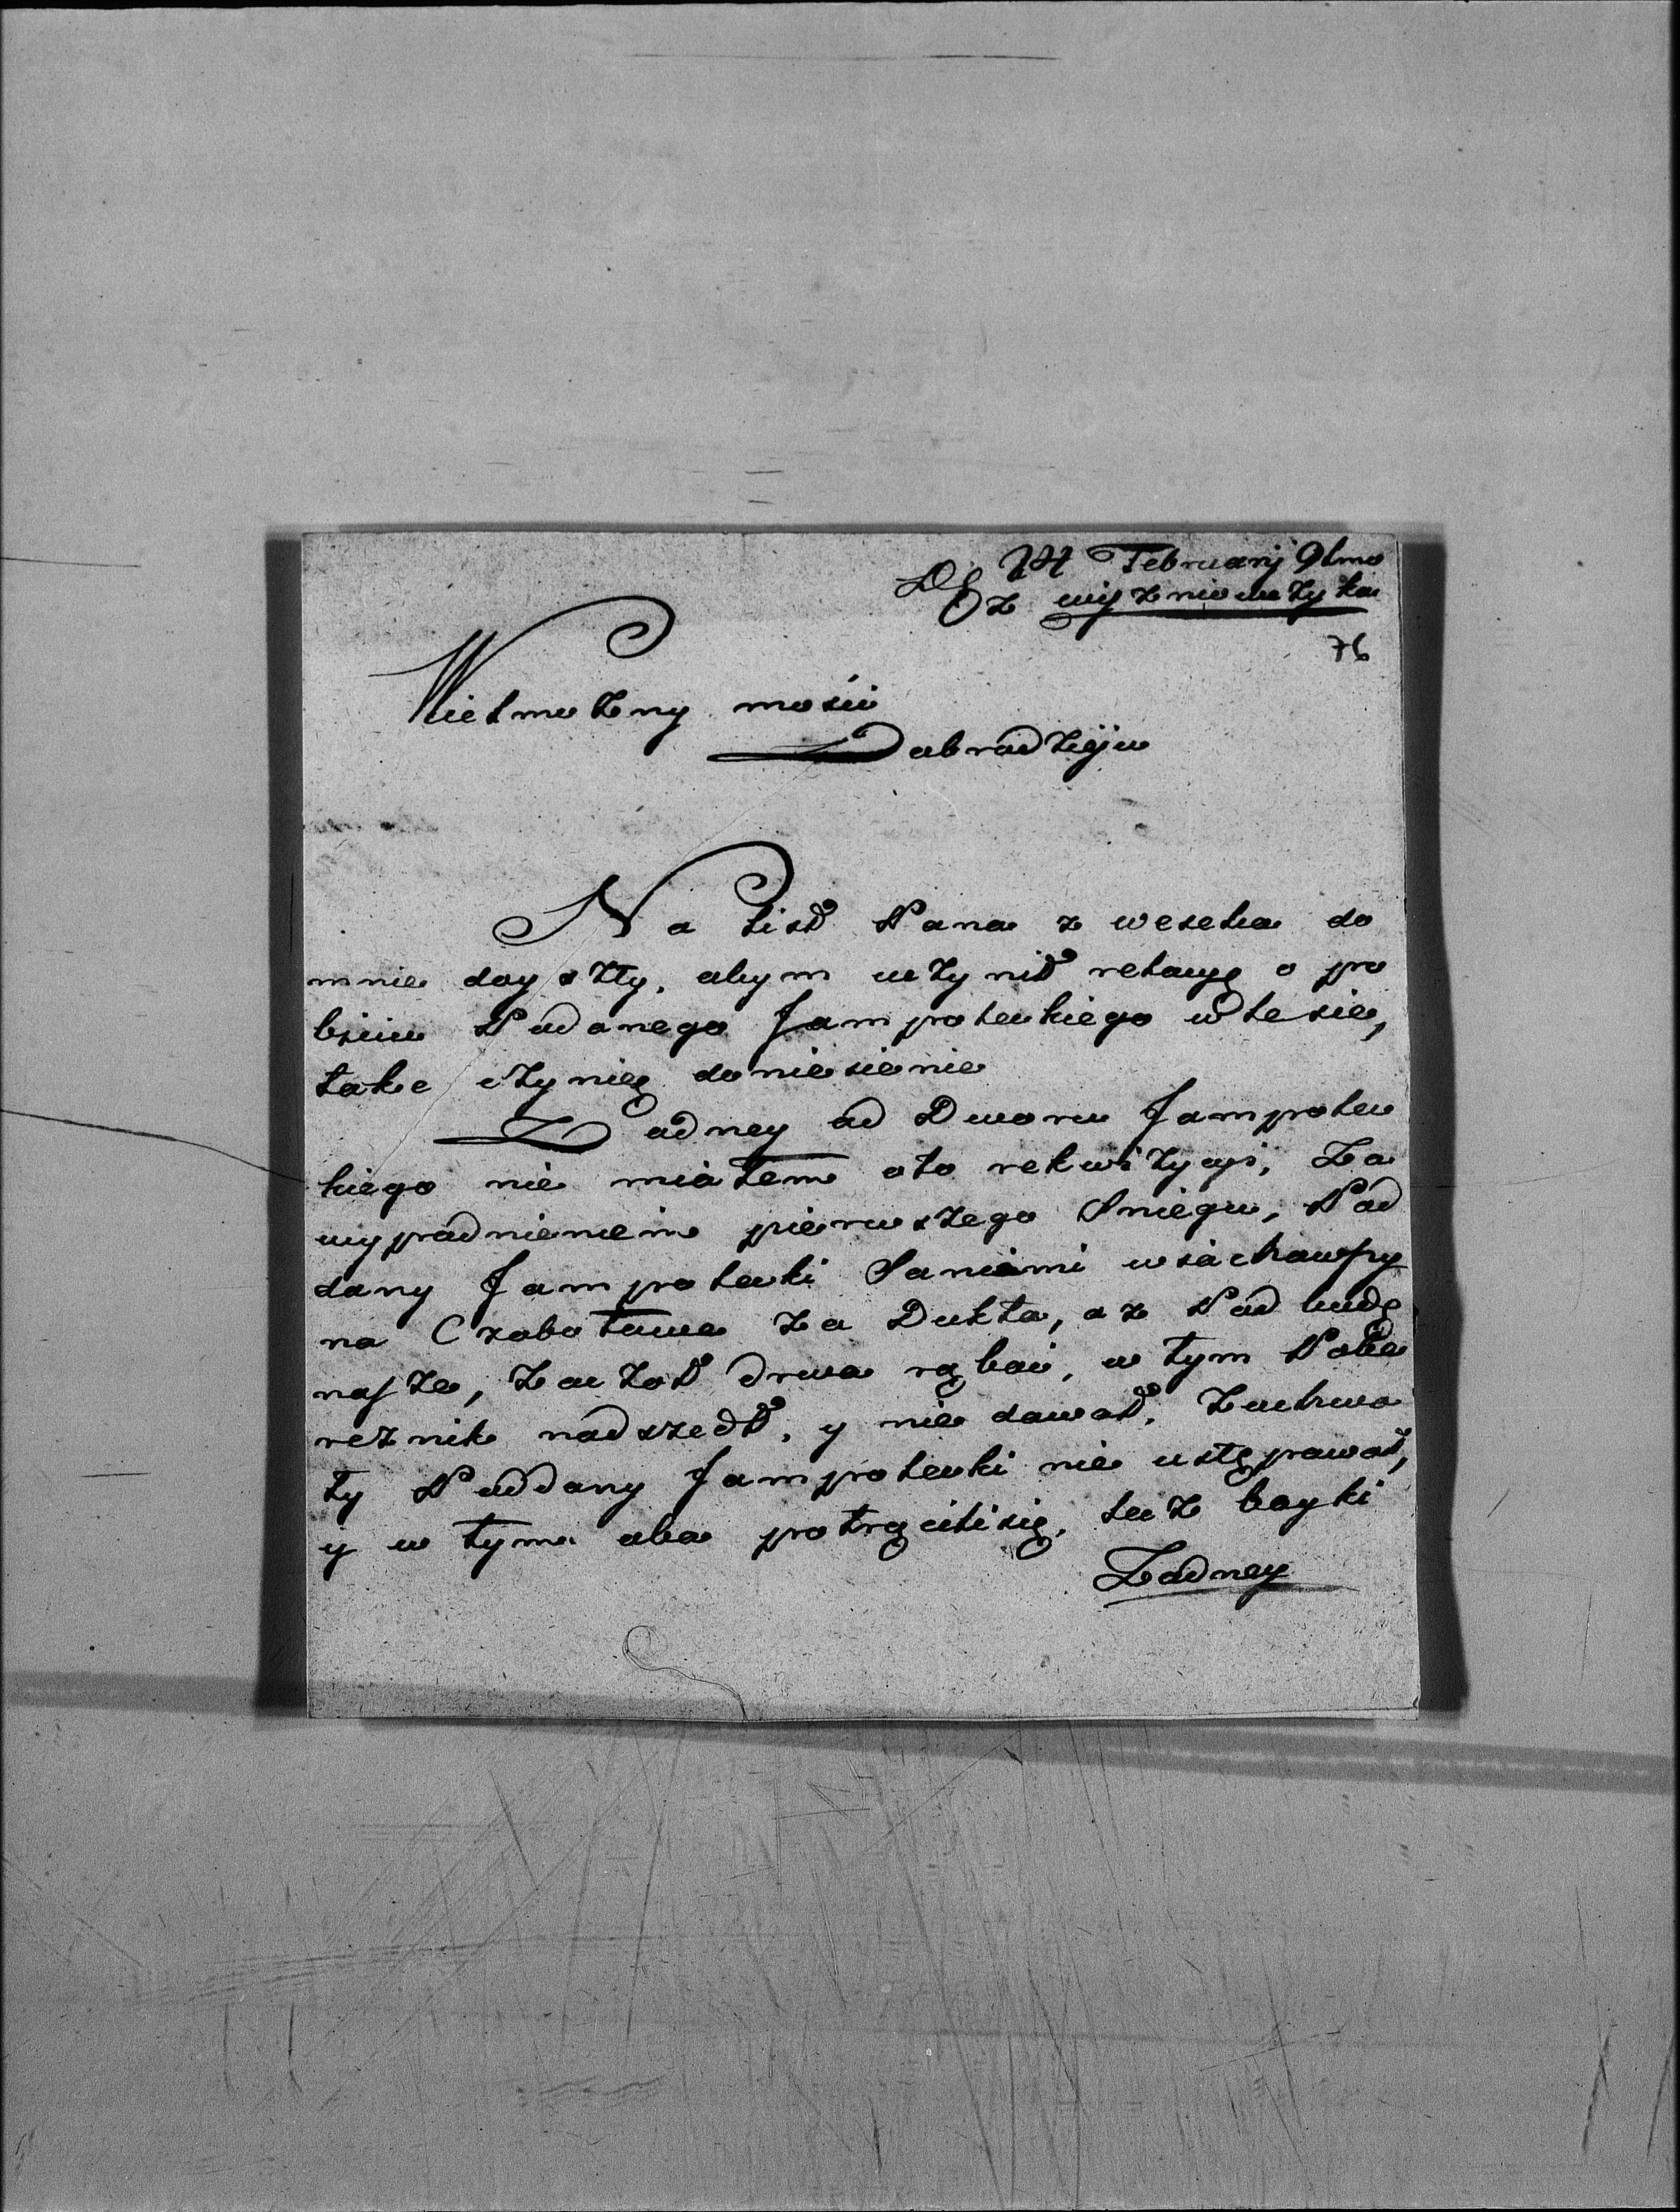 Februarij
z
76
Wielmożny mości
Dobrodzieju
Na list Pana z wesela do
mnie doyszły, abym uczynił relacyę o po
biciu Poddanego Jampolskiego w lesie,
take czynię doniesienie
Żadney od Dworu Jampols
kiego nie miałem oto rekwizycyi, Za
wypadnieniem pierwszego Sniegu, Pod
dany Jampolski Saniami wiachawszy
na Czabotawa za Dukta, aż Pod budę
naszę, zaczoł drwa rąbać, w tym Pobe
reżnik nadszedł, y nie dawał, zuchwa
ły Poddany Jampolski nie ustępował,
y w tym oba potrącili się, lecz boyki
Żadney